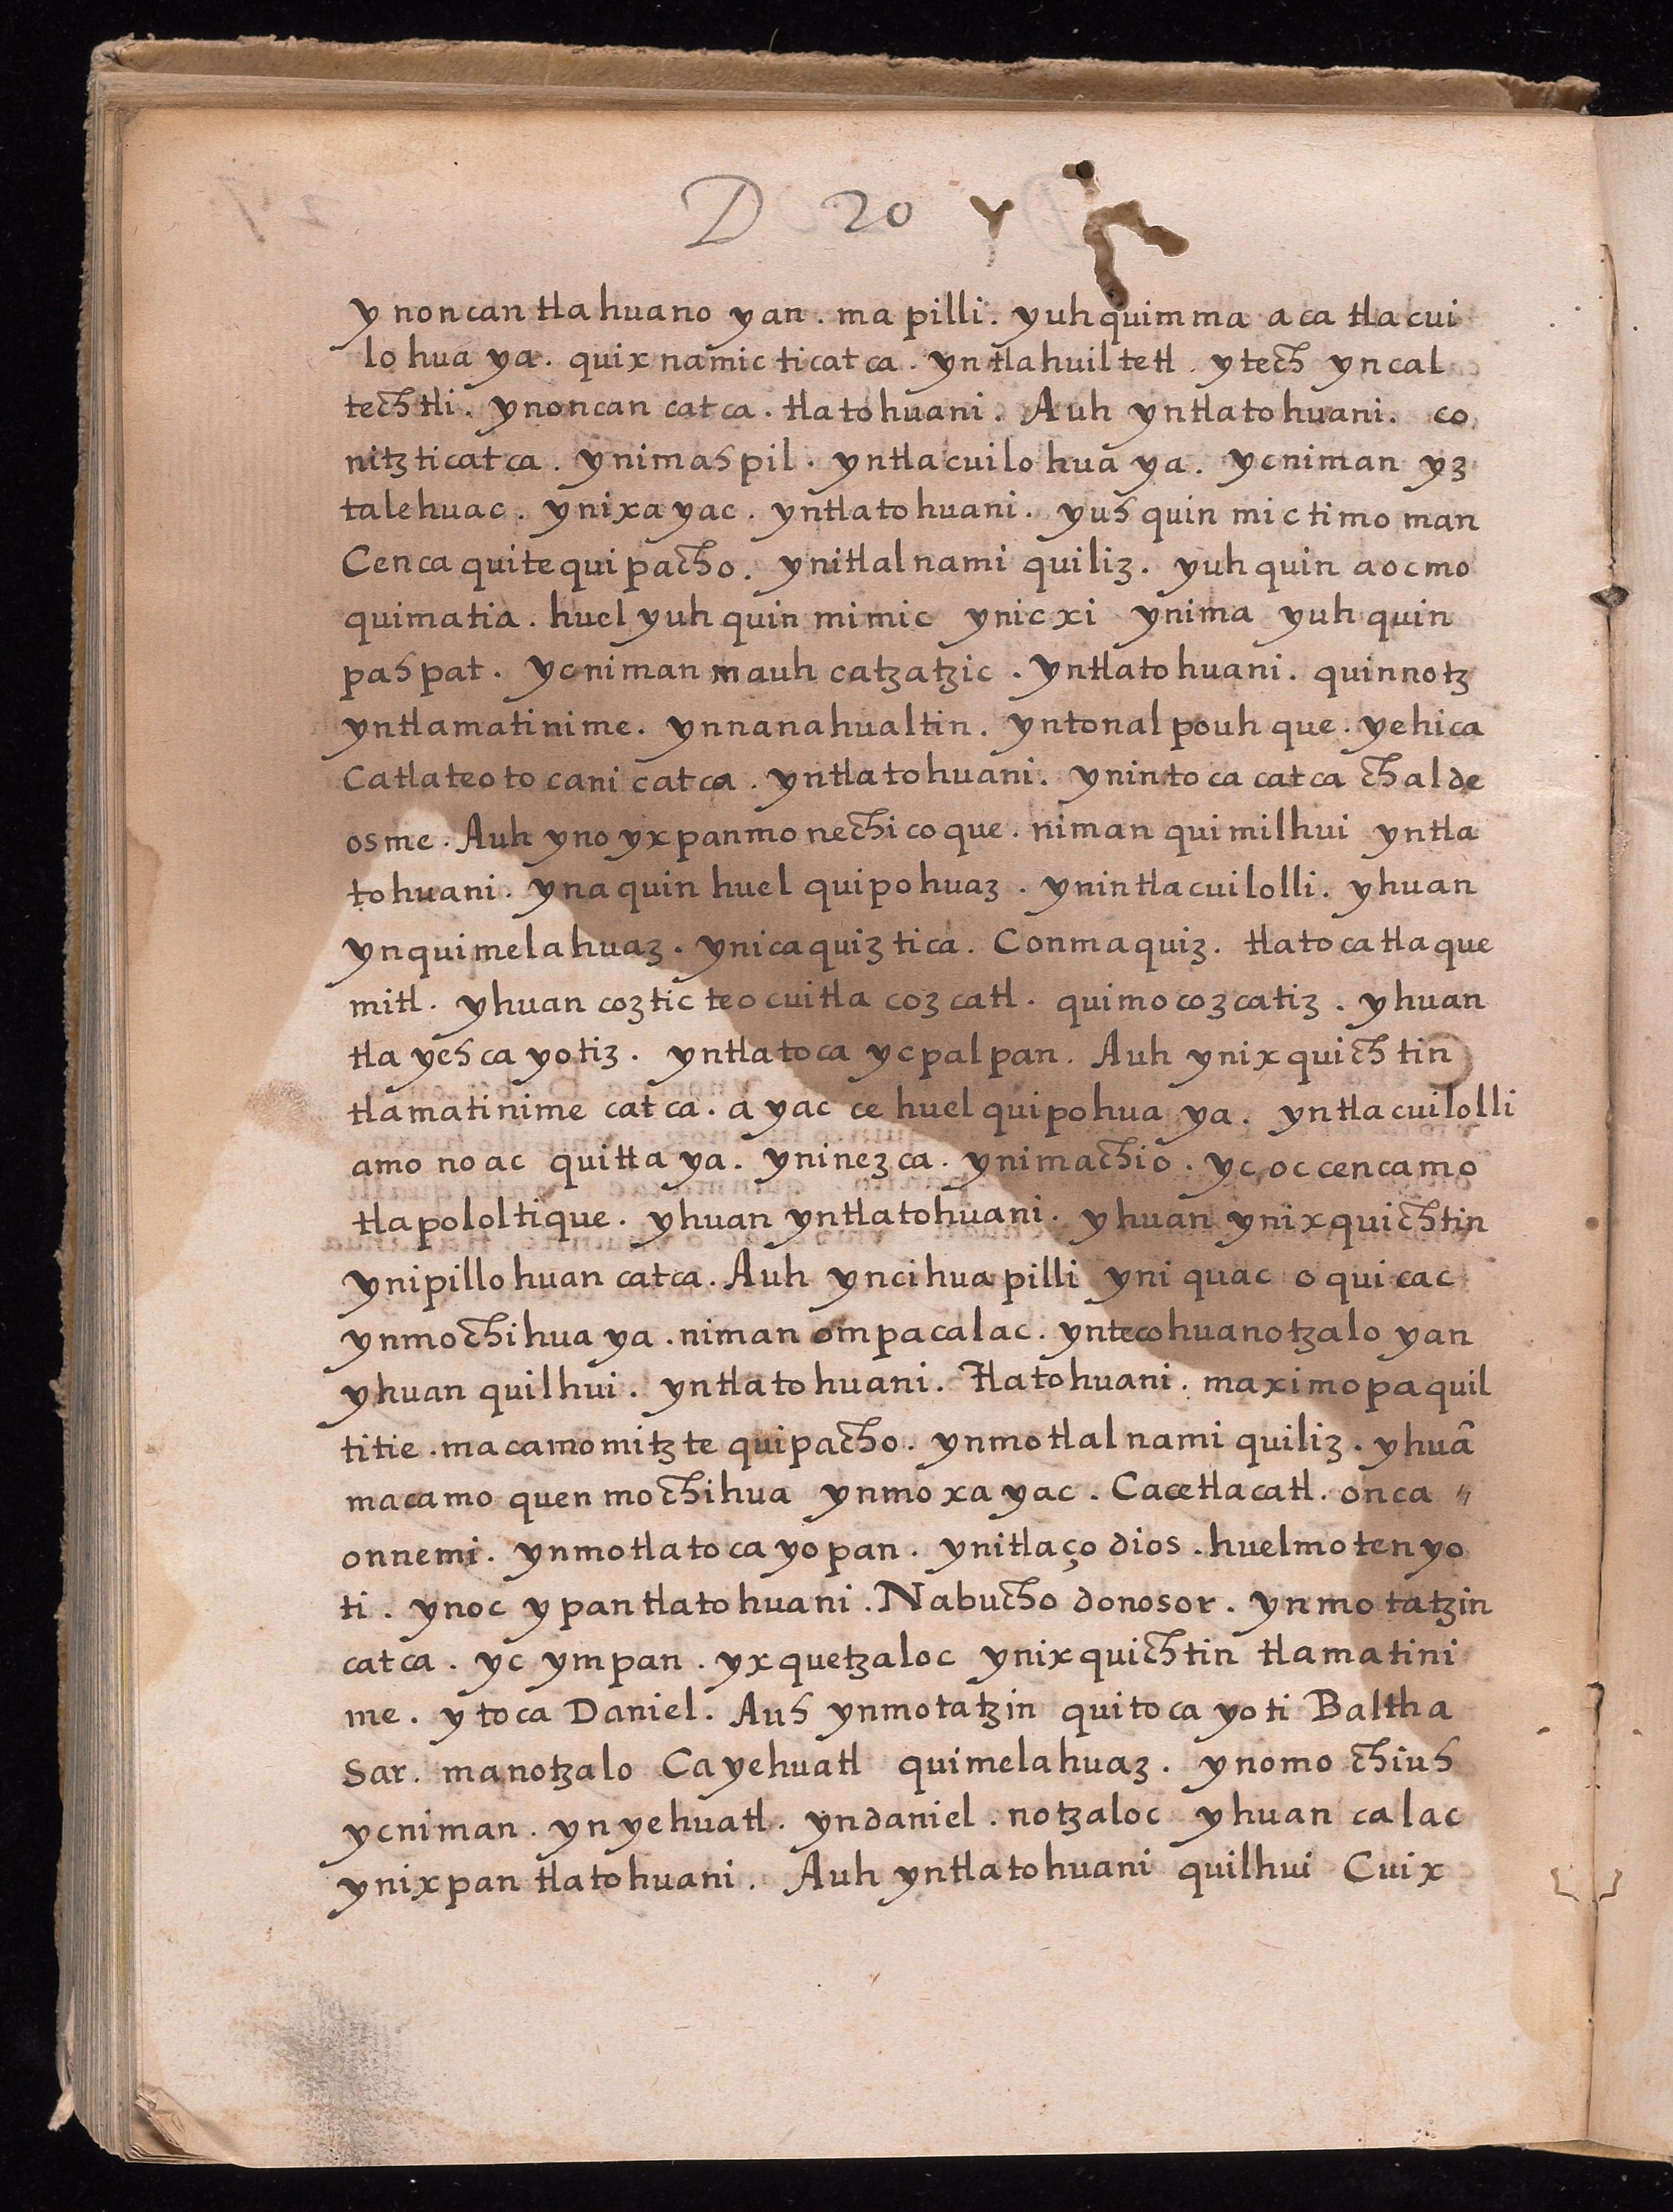 D 20
y noncan tlahuano yan. ma pilli. yuhquimma aca tlacui
lo hua ya. quixnamic ticatca. yntlahuiltetl. ytech yncal
techtli. ynoncan catca. tlatohuani. Auh yntlatohuani. co
nitzticatca. ynimahpil. yntlacuilo hua ya. ycniman yz
talehuac. ynixayac. yntlatohuani. yuh quin mictimo man
Cenca quitequipacho. ynitlalnami quiliz. yuhquin aocmo
quimatia. huel yuhquin mimic ynicxi ynima yuhquin
pahpat. ycniman mauh catzatzic. yntlatohuani. quinnotz
yntlamatinime. ynnanahualtin. yntonalpouhque. yehica
Catlateotocani catca. yntlatohuani. ynintoca catca chalde
osme. Auh yno yxpanmonechicoque. niman quimilhui yntla
tohuani. ynaquin huel quipohuaz. ynintlacuilolli. yhuan
ynquimelahuaz. ynicaquiztica. Conmaquiz. tlatocatlaque
mitl. yhuan coztic teocuitla cozcatl. quimocozcatiz. yhuan
tla yehcayotiz. yntlatoca ycpalpan. Auh ynixquichtin
tlamatinime catca. ayac ce huel quipohua ya. yntlacuilolli
amo no ac quitta ya. yninezca. ynimachio. yc occencamo
tlapololtique. yhuan yntlatohuani. yhuan ynixquichtin
ynipillohuan catca. Auh yncihuapilli yniquac oquicac
ynmochihua ya. niman ompacalac. yntecohuanotzalo yan
yhuan quilhui. yntlatohuani. Tlatohuani. maximopaquil
titie. macamomitztequipacho. ynmotlalnamiquiliz. yhuã
macamo quenmochihua ynmoxayac. Cacetlacatl. onca "
onnemi. ynmotlatocayopan. ynitlaço dios. huelmotenyo
ti. ynoc ypantlatohuani. Nabucho donosor. ynmotatzin
catca. yc ympan. yxquetzaloc ynixquichtin tlamatini
me. ytoca Daniel. Auh ynmotatzin quitocayoti Baltha
Sar. manotzalo Cayehuatl quimelahuaz. ynomochiuh
ycniman. ynyehuatl. yndaniel. notzaloc yhuan calac
ynixpan tlatohuani. Auh yntlatohuani quilhui Cuix